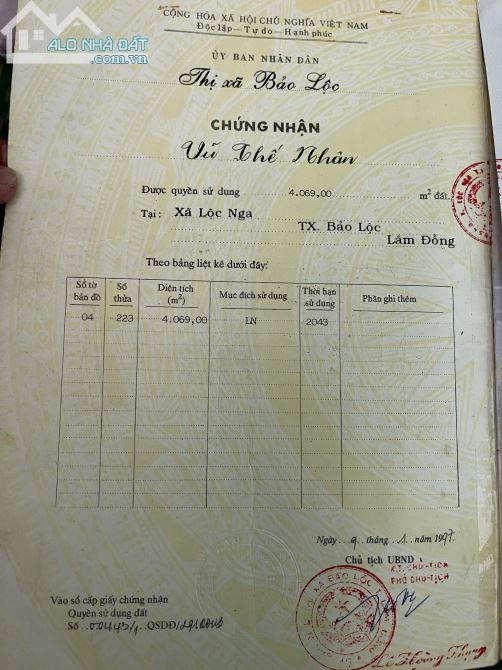 ALO NHÀ ĐẤT
.com.vn
CỘNG HÒA XÃ HỘI CHỦ NGHĨA VIỆT NAM
Độc lập—Tự do—Hạnh phúc
ỦY BAN NHÂN DÂN
Thị xã Bảo Lộc
CHỨNG NHẬN
Vũ Thế Nhân
Được quyền sử dụng 4.069,00 m² đất.
Tại: Xã Lộc Nga
TX. Bảo Lộc
Lâm Đồng
Theo bảng liệt kê dưới đây:
Số tờ bản đồ Số thửa Diện tích (m²) Mục đích sử dụng Thời hạn sử dụng Phần ghi thêm
04 223 4.069,00 LN 2043
Ngày tháng 1 năm 1997
Chủ tịch UBND
K.T. CHỦ-TỊCH
PHÓ CHỦ-TỊCH
Vào sổ cấp giấy chứng nhận
Quyền sử dụng đất
Số QSDĐ/